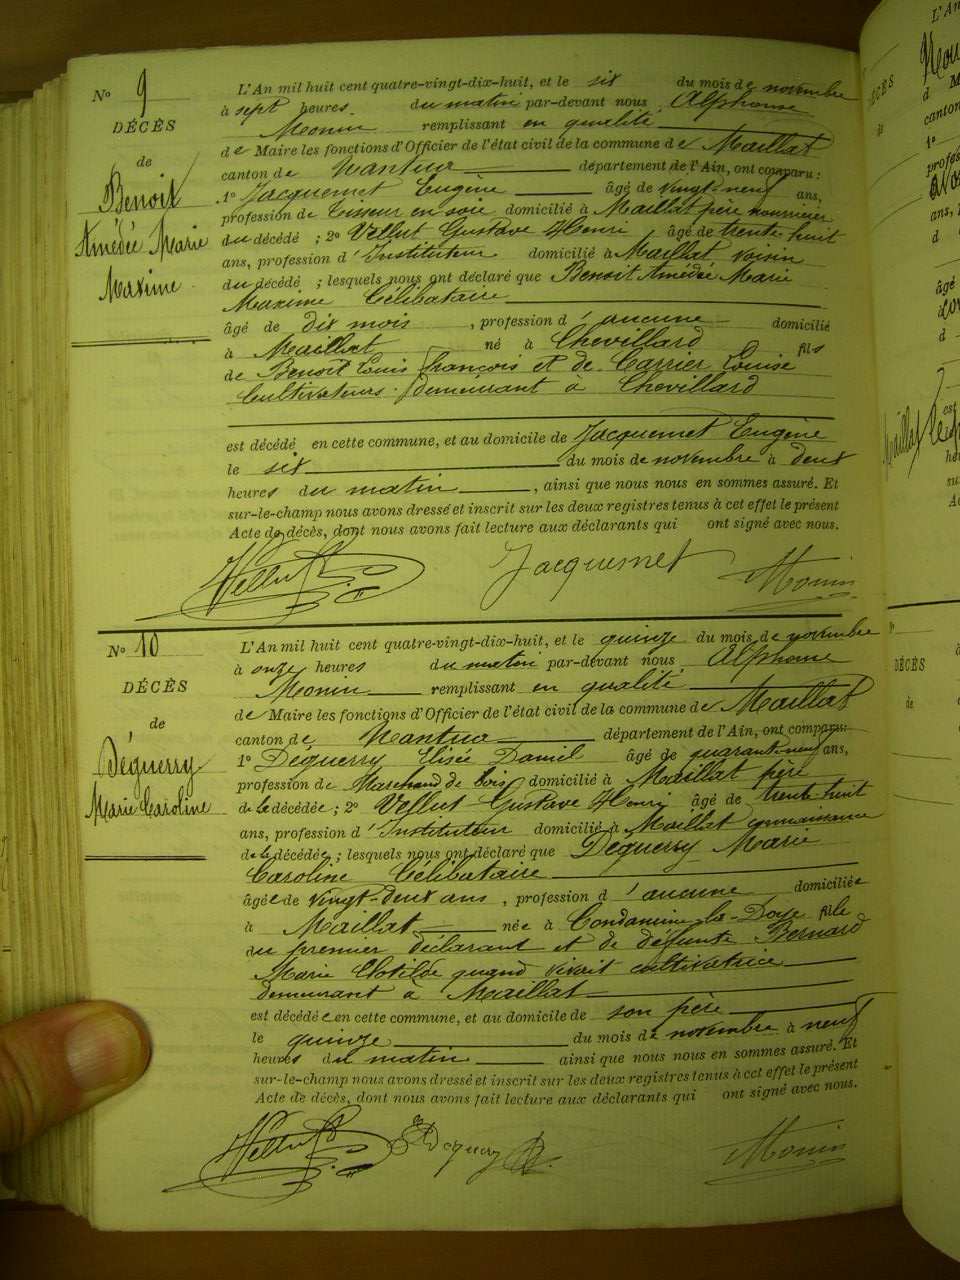 N° 9
DÉCÈS
de
Benoit
Amédée Marie
Maxime
L'An mil huit cent quatre-vingt-dix-huit, et le six du mois de novembre
à sept heures du matin par-devant nous Alphonse
Monin remplissant en qualité
de Maire les fonctions d'Officier de l'état civil de la commune de Maillat
canton de Nantua département de l'Ain, ont comparu :
1° Jacquemet Eugène âgé de vingt-neuf ans,
profession de Tisseur en soie domicilié à Maillat père nourricier
du décédé ; 2° Vellut Gustave Henri âgé de trente huit
ans, profession d'Instituteur domicilié à Maillat voisin
du décédé ; lesquels nous ont déclaré que Benoit Amédée Marie
Maxime Célibataire
âgé de dix mois , profession d'aucune domicilié
à Maillat né à Chevillard fils
de Benoit Louis François et de Carrier Louise
Cultivateurs demeurant à Chevillard
est décédé en cette commune, et au domicile de Jacquemet Eugène
le six du mois de novembre à deux
heures du matin , ainsi que nous nous en sommes assuré. Et
sur-le-champ nous avons dressé et inscrit sur les deux registres tenus à cet effet le présent
Acte de décès, dont nous avons fait lecture aux déclarants qui ont signé avec nous.
Vellut Jacquemet Monin
N° 10
DÉCÈS
de
Déguerry
Marie Caroline
L'An mil huit cent quatre-vingt-dix-huit, et le quinze du mois de novembre
à onze heures du matin par-devant nous Alphonse
Monin remplissant en qualité
de Maire les fonctions d'Officier de l'état civil de la commune de Maillat
canton de Nantua département de l'Ain, ont comparu :
1° Déguerry Elisée Daniel âgé de quarante-neuf ans,
profession de Marchand de bois domicilié à Maillat père
de la décédée ; 2° Vellut Gustave Henri âgé de trente-huit
ans, profession d'Instituteur domicilié à Maillat connaissance
de la décédée ; lesquels nous ont déclaré que Déguerry Marie
Caroline Célibataire
âgée de vingt-deux ans , profession d'aucune domiciliée
à Maillat née à Condamine-la-Doye fille
du premier déclarant et de défunte Bernard
Marie Clotilde quand vivait cultivatrice
demeurant à Maillat
est décédée en cette commune, et au domicile de son père
le quinze du mois de novembre à neuf
heures du matin ainsi que nous nous en sommes assuré. Et
sur-le-champ nous avons dressé et inscrit sur les deux registres tenus à cet effet le présent
Acte de décès, dont nous avons fait lecture aux déclarants qui ont signé avec nous.
Vellut Monin